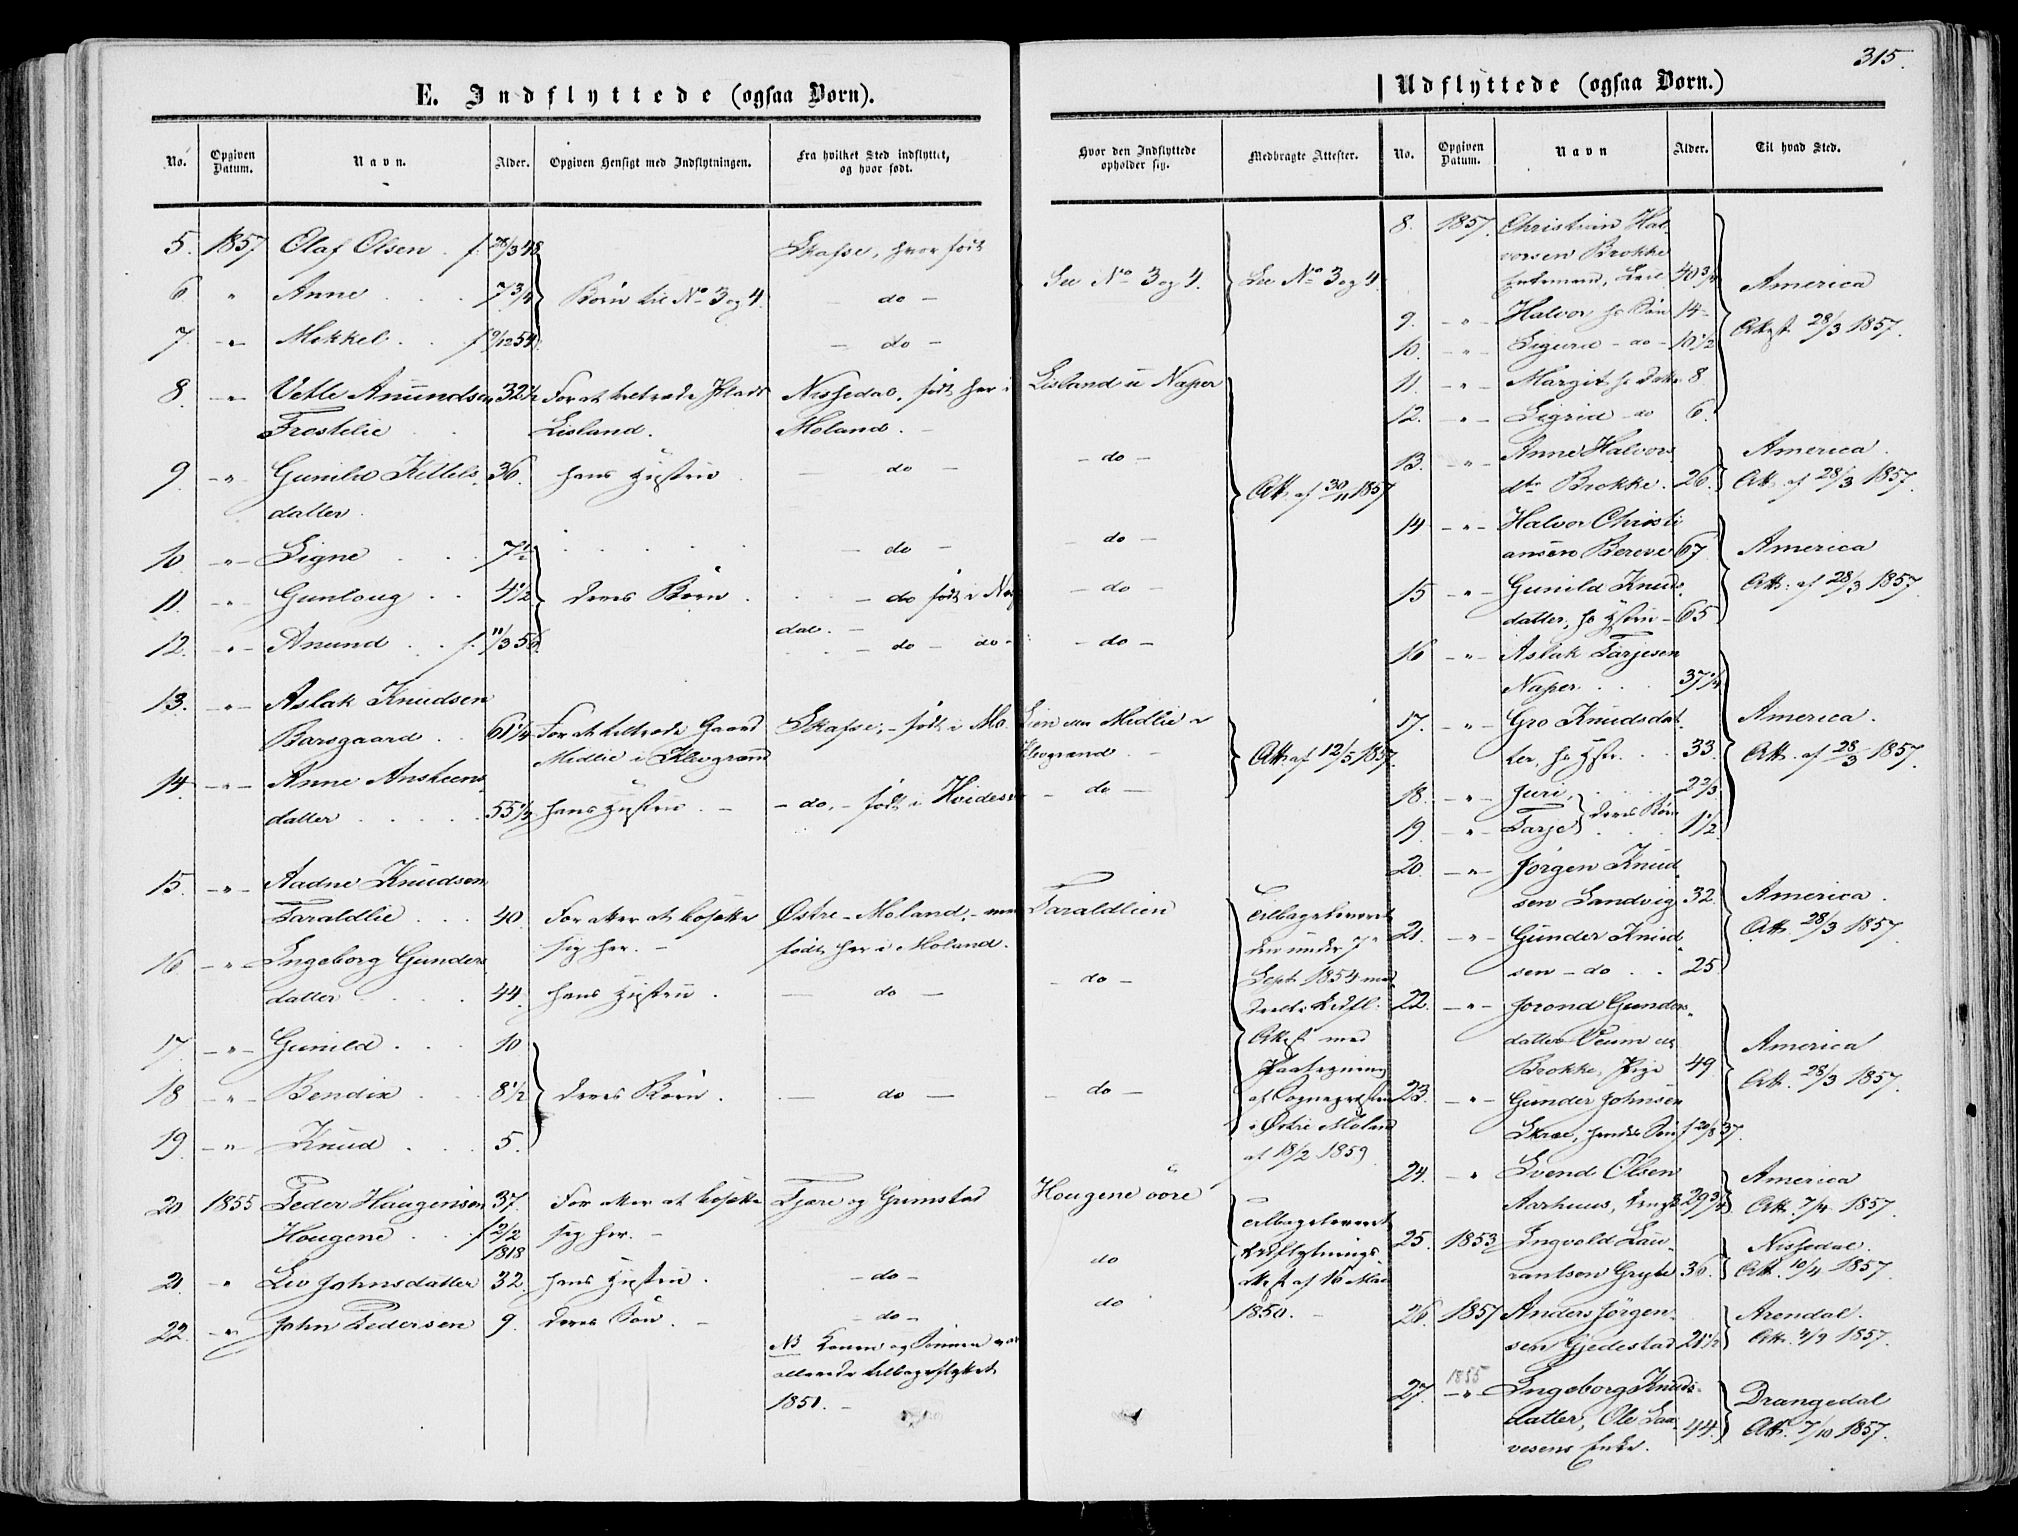 315.
E. Indflyttede (ogsaa Børn).
No. Opgiven Datum. Navn. Alder. Opgiven Hensigt med Indflytningen. Fra hvilket Sted indflyttet, og hvor født. Hvor den Indflyttede opholder sig. Medbragte Attester.
5. 1857 Olaf Olsen . f. 28/3 48 hvor født
6 " Anne . . . 7 3/4 Børn til No 3 og 4. - do - See No 3 og 4. See No 3 og 4.
7. " Mikkel . . f 9/12 54. - do -
8. -"- Vetle Anundsen 32 1/2 For at betræde Plads Nissedal, født her i Lisland u Naper
Frostelie . . Lisland. Moland. -
9 -"- Gunild Kittels 36. hans Hustru - do - - do - Att. af 30/11 1857
datter.
10 -"- Signe . . . 7 1/2 - do - - do -
11. -"- Gunloug . . 4 1/2 deres Børn . - do født i Nis - do -
dal. -
12. -"- Anund . . f. 11/3 56. - do - do - - do -
13. -"- Aslak Knudsen
Barsgaard . . 61 1/4 For at tiltræde Gaard født i Mo. Lien Midlie i
Midlie i Klevgrænd Klevgrænd - Att af 12/5 1857
14. -"- Anne Ansteens
datter . . . 55 1/4 hans Hustru . - - do, - født i Hvidese - do -
15. -"- Aadne Knudsen
Taraldlie . . . 40. For atter at bosætte Østre-Moland, - men Taraldlien
sig her. - født her i Moland.
16 -"- Ingeborg Gunders
datter . . . 44. hans Hustru . - do - - do -
17. -"- Gunild . . . 10
18 -"- Bendix . . 8 1/2 deres Børn . - do - - do -
19. -"- Knud . . . 5.
Tilbageleveret
den under 7de
Sept. 1854
Udfl.
Attest med
Paategning
af Sognepresten
i Østre Moland
af 18/2 1859
20 1855 Peder Haagensen 37. For atter at bosætte Fjære og Grimstad Hougene øvre
Hougene . . f 2/2 1818 sig her. -
21 " Liv Johnsdatter 32. hans Hustru . - do - do
22. -"- John Pedersen 9. deres Søn . - - do - do
NB Konen og Sønnen var
allerede tilbageflyttet
1851. -
Tilbageleveret
Udflytnings
attest af 16 Mai
1850. -
Udflyttede (ogsaa Børn.)
No. Opgiven Datum. Navn Alder. Til hvad Sted.
8. 1857. Christian Hal
vorsen Brokke
Enkemand, 40 3/4 America
9. -"- Halvor hs Søn 14 - Attest 28/3 1857.
10. -"- Sigurd - do - 10 1/2
11. -"- Margit hs Datter 8
12. -"- Sigrid do 6.
13. -"- Anne Halvors America.
dtr Brokke. 26. Att. af 28/3 1857.
14 -"- Halvor Christi
ansen Bereve 67. America
15 -"- Gunild Knuds Att. af 28/3 1857.
datter, hs Hstru - 65
16 -"- Aslak Tarjesen
Naper . . . 37 1/4
17. -"- Gro Knudsdat America.
ter, hs Hstr. . . 33. Att. af 28/3 1857.
18. -"- Juri, . . . 2 2/3
19. -"- Tarje deres Børn 1 1/2
20. -"- Jørgen Knud
sen Sandvig 32. America.
21. -"- Gunder Knud Att. 28/3 1857.
sen - do . . 25
22. -"- Jorond Gunders
datter Veum
Brokke, Pige 49. America
23. -"- Gunder Johnsen Att. 28/3 1857.
hendes Søn f 20/8 37.
24. -"- Svend Olsen America
Aarhuus, 29 3/4 Att. 7/4 1857.
25. 1853 Ingvald Lau- Nissedal.
rantsen Grybe 36. Att. 10/4 1857.
26. 1857 Anders Jørgen- Arendal.
sen Gjedestad 21 1/2 Att. 4/9 1857.
1855
27. -"- Ingeborg Knuds- Drangedal
datter, Ole Saa 44. Att. 7/10 1857.
vesens Enke.